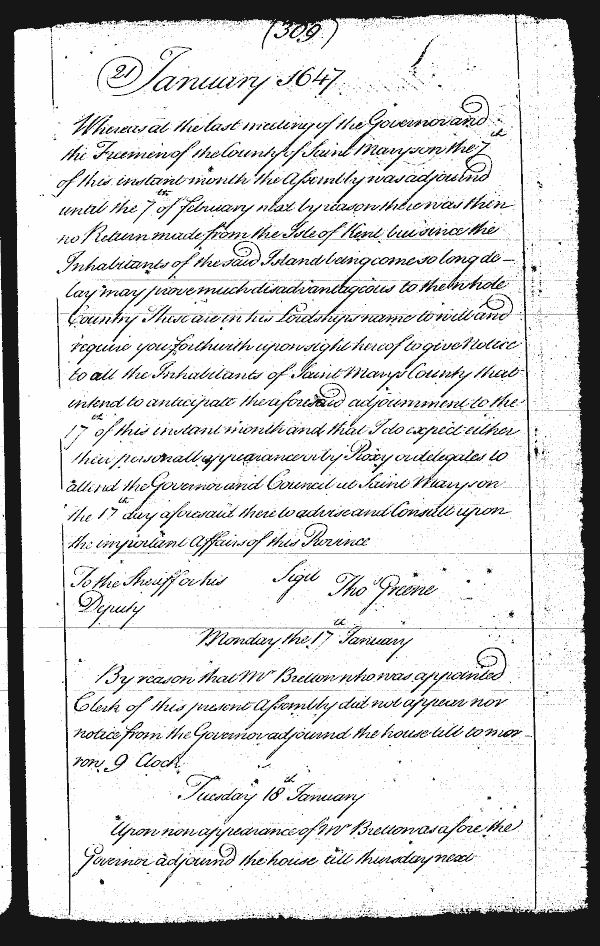 (309)
21 January 1647
Whereas at the last meeting of the Governor and
the Freemen of the County of Saint Marys on the 7th
of this instant month the Assembly was adjournd
until the 7th of february next by reason there was then
no Return made from the Isle of Kent, but since the
Inhabitants of the said Island being come so long de-
lay may prove much disadvantageous to the whole
Country These are in his Lordships name to will and
require you forthwith upon sight hereof to give Notice
to all the Inhabitants of Saint Marys County that
intend to anticipate the aforesaid adjournment to the
17th of this instant month and that I do expect either
their personall appearances or by Proxy or delegates to
attend the Governor and Council at Saint Marys on
the 17th day aforesaid there to advise and Consult upon
the important Affairs of this Province
To the Sheriff or his Sigil Thos Greene
Deputy
Monday the 17th January
By reason that Mr Bretton who was appointed
Clerk of this present Assembly did not appear nor
notice from the Governor adjournd the house till to mor-
row 9 Clock
Tuesday 18th January
Upon non appearance of Mr Bretton as afore the
Governor adjournd the house till thursday next